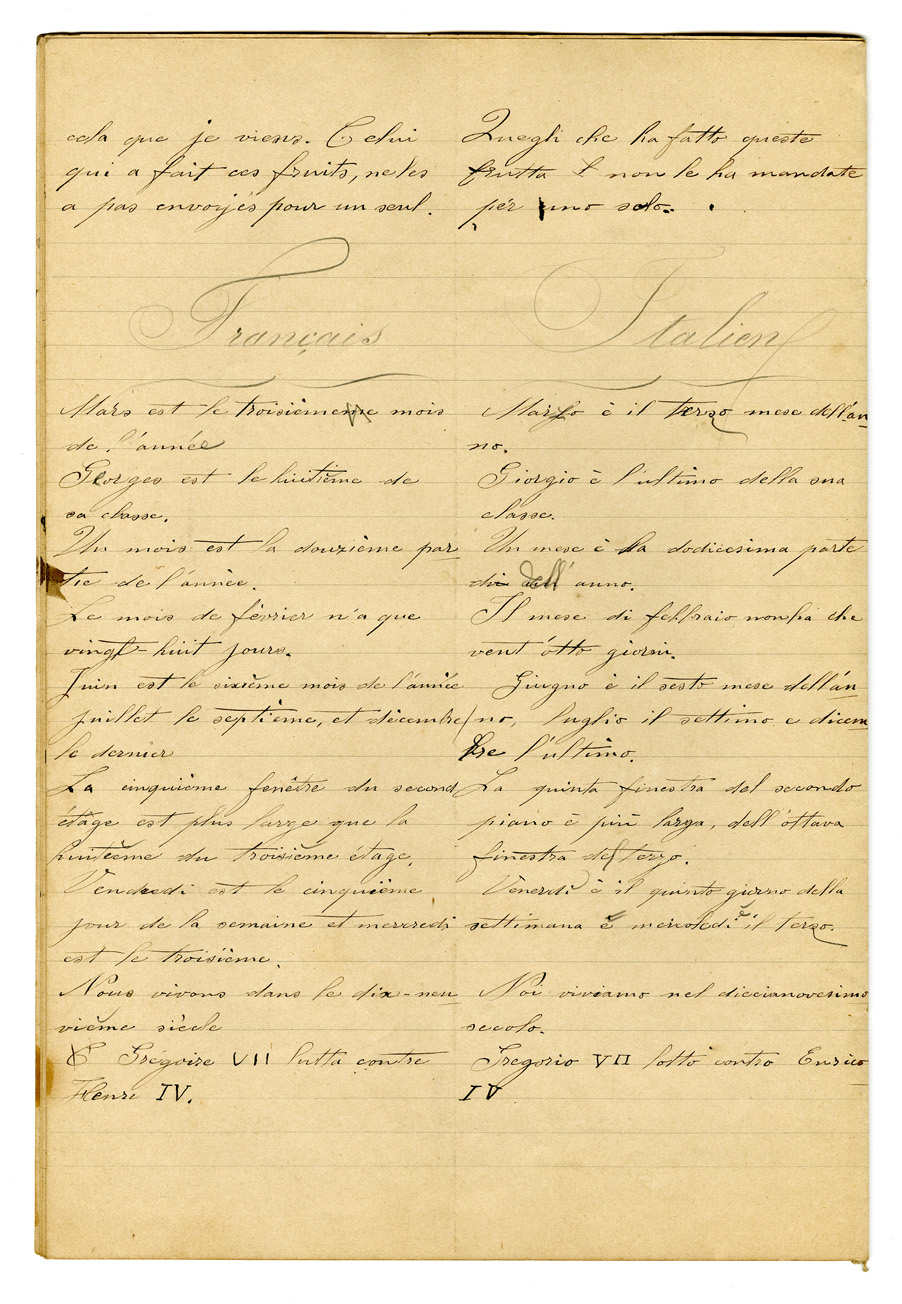 cela que je viens. Celui
qui a fait ces fruits, ne les
a pas envoyés pour un seul.
Quegli che ha fatto queste
frutta non le ha mandate
per uno solo.
Français
Italien
Mars est le troisièmeme mois
de l'année
Georges est le huitième de
sa classe.
Un mois est la douzième par
tie de l'année.
Le mois de février n'a que
vingt-huit jours.
Juin est le sixième mois de l'année
juillet le septième, et décembre
le dernier
La cinquième fenêtre du second
étage est plus large que la
huitième du troisième étage.
Vendredi est le cinquième
jour de la semaine et mercredi
est le troisième.
Nous vivons dans le dix-neu
vième siècle
Grégoire VII lutta contre
Henri IV.
Marzo è il terzo mese dell'an
no.
Giorgio è l'ultimo della sua
classe.
Un mese è la dodicesima parte
dell' anno.
Il mese di febbraio non ha che
vent'otto giorni.
Giugno è il sesto mese dell'an
no, luglio il settimo e dicem
bre l'ultimo.
La quinta finestra del secondo
piano è più larga, dell'ottava
finestra del terzo.
Venerdì è il quinto giorno della
settimana e mercoledì è il terzo.
Noi viviamo nel diccianovesimo
secolo.
Gregorio VII lottò contro Enrico
IV